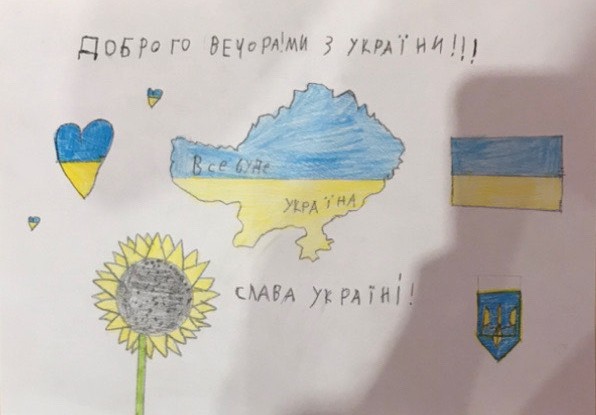 ДОБРОГО ВЕЧОРА!МИ З УКРАЇНИ!!!
Все буде
УКРАЇНА
СЛАВА УКРАЇНІ!